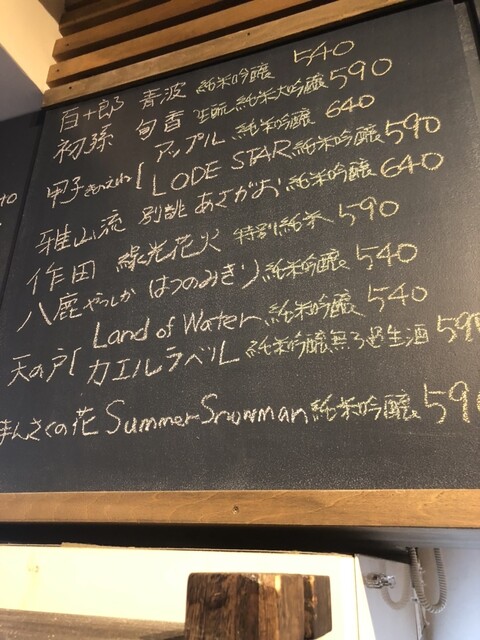 百十郎 青波 純米吟醸 540
初孫 旬香 生酛純米大吟醸 590
甲子きのえね アップル 純米吟醸 640
LODE STAR 純米吟醸 590
雅山流 別誂 あさがお 純米吟醸 640
作田 線光花火 特別純米 590
八鹿 やつしか はつのみきり 純米吟醸 540
天の戸 Land of Water 純米吟醸 540
カエルラベル 純米吟醸無ろ過生酒 590
まんさくの花 Summer Snowman 純米吟醸 590